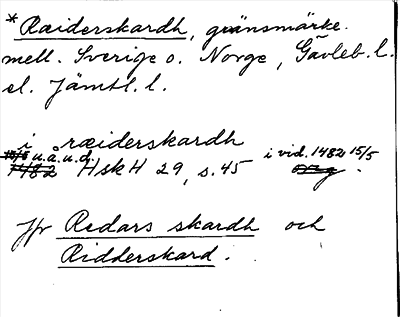 *Ræiderskardh, gränsmärke.
mell. Sverige o. Norge, Gävleb. l.
el. Jämtl. l.
i ræiderskardh
u.a.u.d. i vid. 1482 15/5
1482 HskH 29, s. 45 org.
Jfr Redars skardh och
Ridderskard.